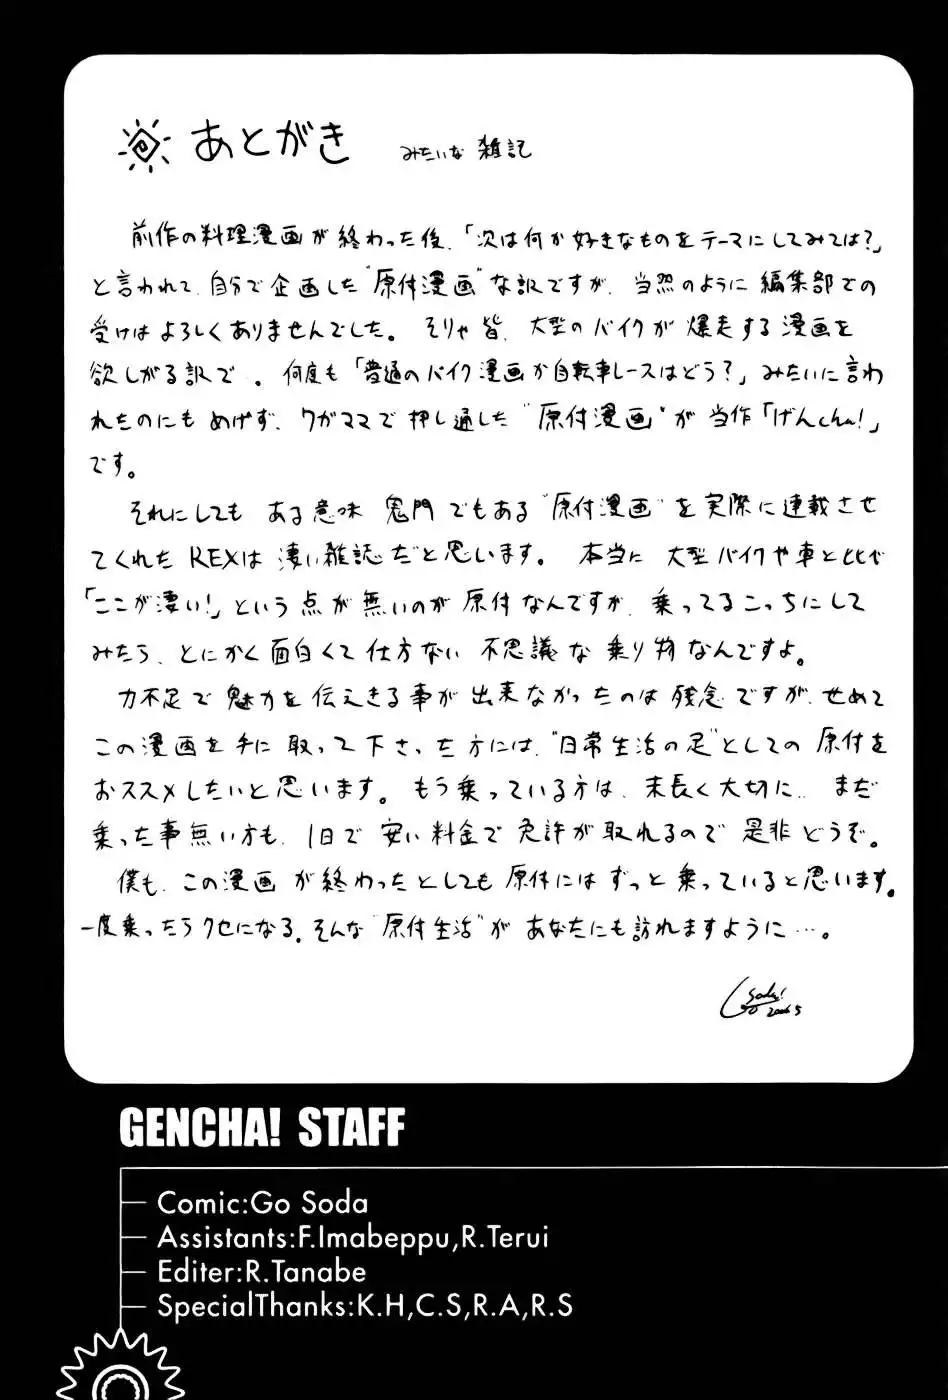 あとがき みたいな 雑記
前作の料理漫画が終わった後、「次は何か好きなものをテーマにしてみては?」
と言われて、自分で企画した"原付漫画"な訳ですが、当然のように編集部での
受けはよろしくありませんでした。そりゃ皆、大型のバイクが爆走する漫画を
欲しがる訳で。何度も「普通のバイク漫画か自転車レースはどう?」みたいに言わ
れたのにもめげず、ワガママで押し通した"原付漫画"が当作「げんcha!」
です。
それにしてもある意味鬼門でもある"原付漫画"を実際に連載させ
てくれたREXは凄い雑誌だと思います。本当に大型バイクや車と比べ
「ここが凄い!」という点が無いのが原付なんですが、乗ってるこっちにして
みたら、とにかく面白くて仕方ない不思議な乗り物なんですよ。
力不足で魅力を伝えきる事が出来なかったのは残念ですが、せめて
この漫画を手に取って下さった方には、"日常生活の足"としての原付を
おススメしたいと思います。もう乗っている方は、末長く大切に、まだ
乗った事無い方も、1日で安い料金で免許が取れるので是非どうぞ。
僕も、この漫画が終わったとしても原付にはずっと乗っていると思います。
一度乗ったらクセになる、そんな"原付生活"があなたにも訪れますように…。
Go Soda! 2006 5
GENCHA! STAFF
Comic:Go Soda
Assistants:F.Imabeppu,R.Terui
Editer:R.Tanabe
SpecialThanks:K.H,C.S,R.A,R.S